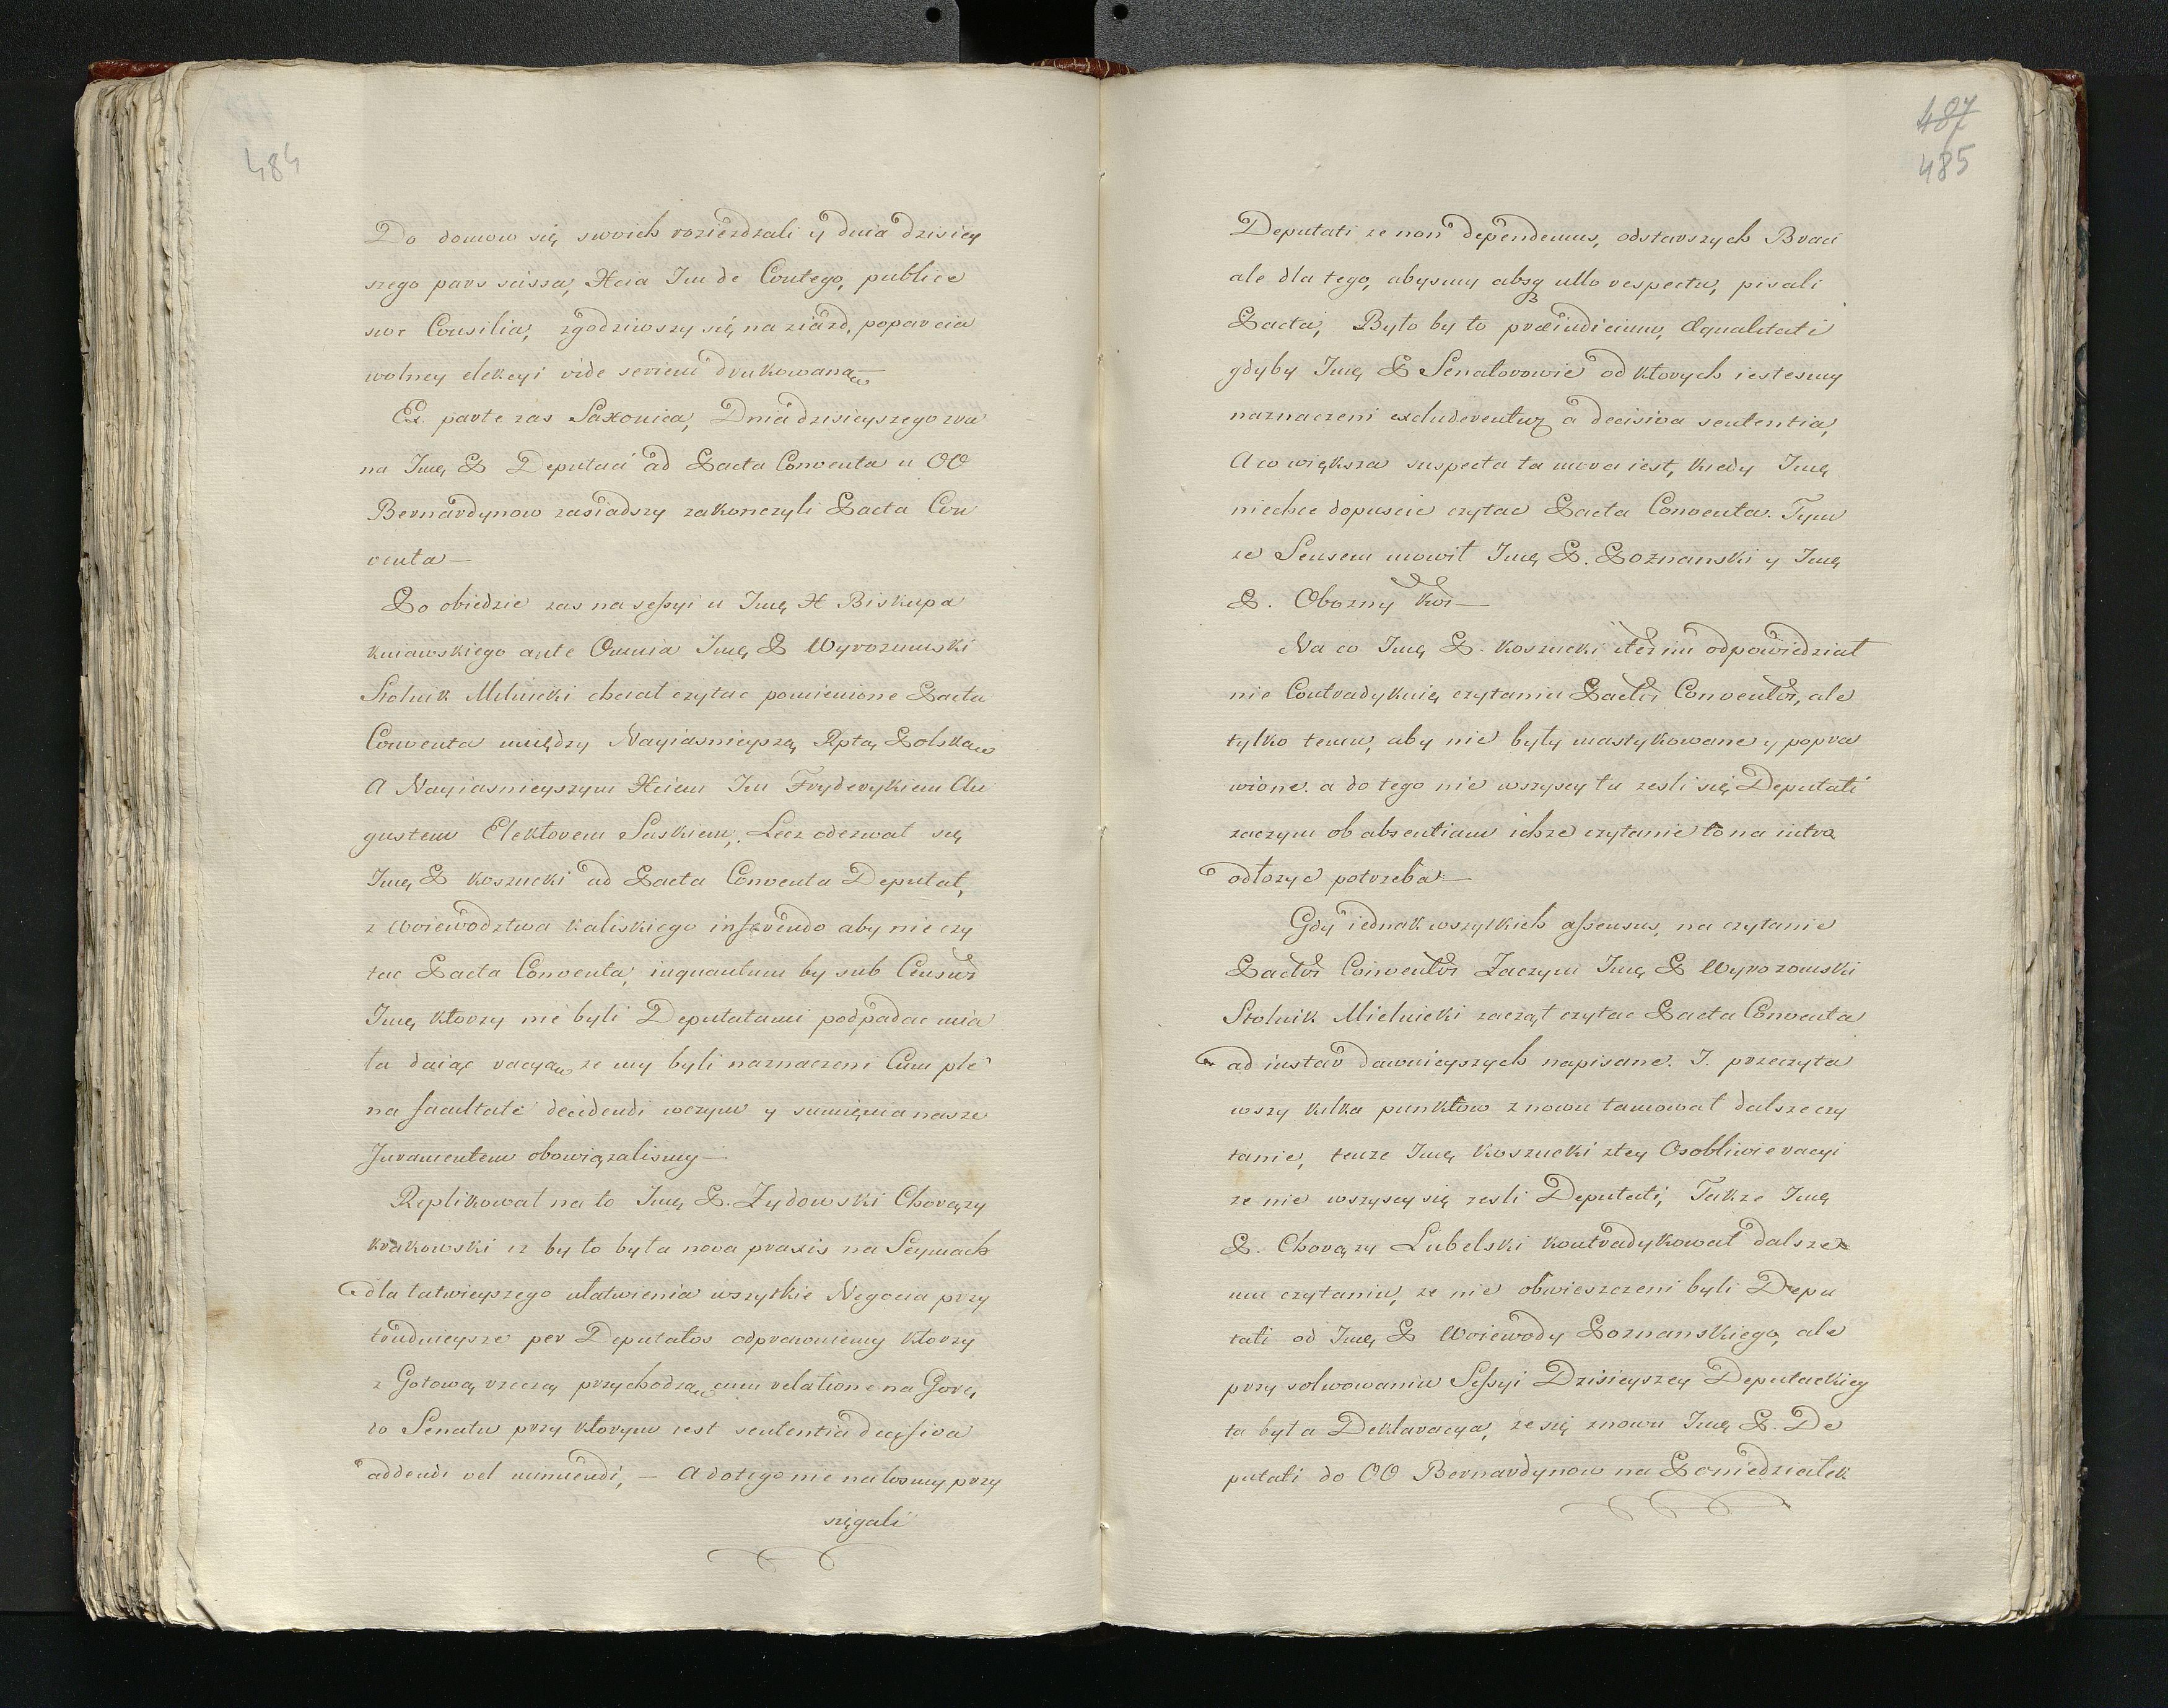 484
Do domow się swoich rozierdzali y dnia dzisiey
szego pars scissa, Xcia Im de Contego, publice
swe Consilia, zgodziwszy się na ziazd, poparcia
wolney elekcyi vide seriem drukowaną
Ex parte zas Saxonica, Dnia dzisieyszego zra
na Imę P Deputaci ad Pacta Conventa u OO
Bernardynow zasiadszy zakonczyli Pacta Con
venta —
Po obiedzie zas na sessyi u Imę X Biskupa
kuiawskiego ante Omnia Imę P Wyrozumski
Stolnik Milnicki chciał czytac pomienione Pacta
Conventa między Nayiasnieyszą Rptą Polską
A Nayiasnieyszym Xciem Im Fryderykiem Au
gustem Elektorem Saskiem, Lecz odezwał się
Imę P Koszucki ad Pacta Conventa Deputat,
z Woiewodztwa kaliskiego inserendo aby nie czy
tac Pacta Conventa, inquantum by sub Censur
Imę ktorzy nie byli Deputatami podpadac mia
ła daiąc racyą ze my byli naznaczeni Cum ple
na facultate decidendi wczym y sumięnia nasze
Juramentem obowiązalismy —
Replikował na to Imę P. Zydowski Chorązy
krakowski iz by to była nova praxis na Seymach
dla łatwieyszego ułatwienia wszytkie Negocia przy
trudnieysze per Deputatos odprawuiemy ktorzy
z Gotową rzeczą przychodzą cum relatione na Gorę
do Senatu przy ktorym iest sententia decisiva
addendi vel minuendi, — A dotego nie na tosmy przy
sięgali
487
485
Deputati ze non dependemus, od starszych Braci
ale dla tego, abysmy absq ullo respectu, pisali
Pacta, Było by to præiudicium, Æqualitati
gdyby Imę P Senatorowie od ktorych iestesmy
naznaczeni excluderentur a decisiva sententia,
A co większa suspecta ta mora iest, kiedy Imę
niechce dopuscic czytac Pacta Conventa. Tym
ze Sensem mowił Imę P. Poznanski y Imę
P. Obozny kor —
Na co Imę P. Koszucki iterim odpowiedział
nie Contradykuię czytaniu Pactor Conventor, ale
tylko temu, aby nie były mastykowane y popra
wione. a do tego nie wszyscy tu zesli się Deputati
zaczym ob absentiam ichze czytanie to na iutro
odłozyc potrzeba —
Gdy iednak wszytkich assensus, na czytanie
Pactor Conventor Zaczym Imę P Wyrozomski
Stolnik Mielnicki zaczął czytac Pacta Conventa
ad instar dawnieyszych napisane. I. przeczyta
wszy kilka punktow znowu tamował dalsze czy
tanie, tenze Imę Koszucki z tey Osobliwie racyi
ze nie wszyscy się zesli Deputati, Takze Imę
P. Chorązy Lubelski kontradykował dalsze
mu czytaniu, ze nie obwieszczeni byli Depu
tati od Imę P Woiewody Poznanskiego, ale
przy solwowaniu Sessyi Dzisieyszey Deputackiey
ta była Deklaracya, ze się znowu Imę P. De
putati do OO Bernardynow na Poniedziałek